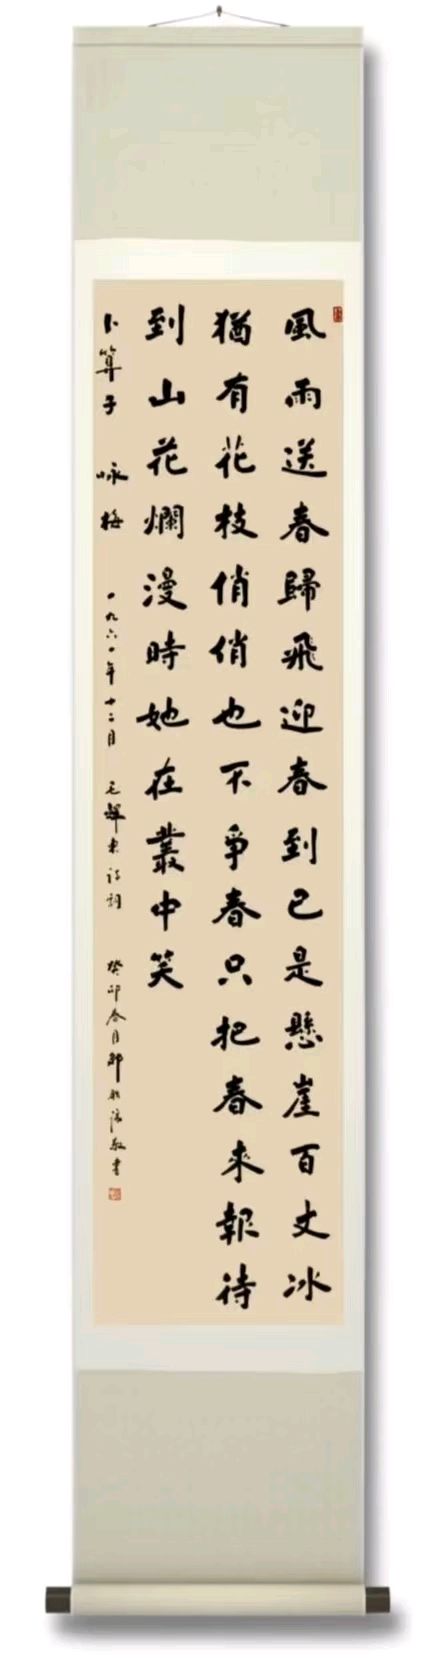 風雨送春歸飛迎春到已是懸崖百丈冰
猶有花枝俏俏也不爭春只把春來報待
到山花爛漫時她在叢中笑
卜算子 咏梅 一九六一年十二月 毛澤東詩詞 癸卯春月 敬書